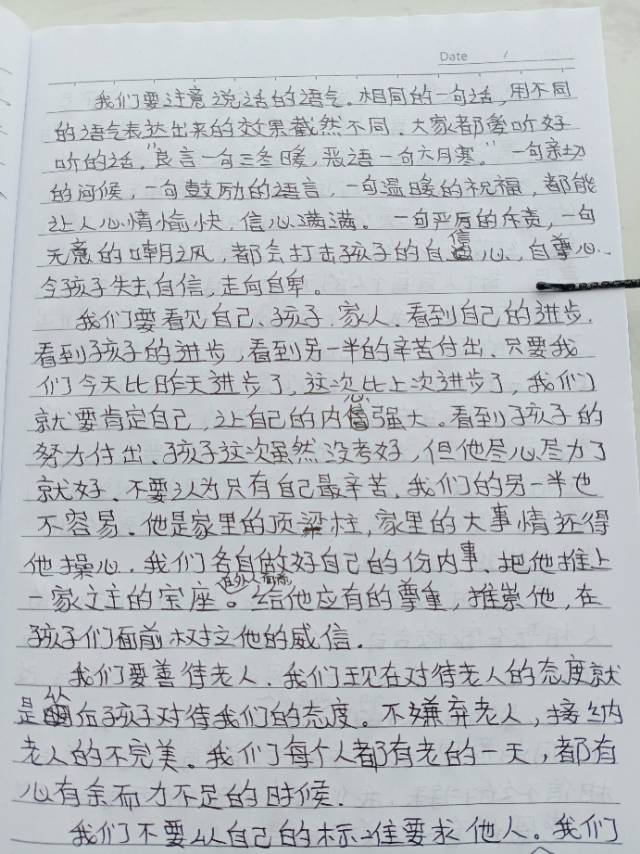 Date /
我们要注意说话的语气。相同的一句话,用不同
的语气表达出来的效果截然不同。大家都爱听好
听的话。"良言一句三冬暖,恶语一句六月寒。"一句亲切
的问候,一句鼓励的语言,一句温暖的祝福,都能
让人心情愉快,信心满满。一句严厉的斥责,一句
无意的嘲讽,都会打击孩子的自信心、自尊心..
令孩子失去自信,走向自卑。
我们要看见自己、孩子、家人。看到自己的进步,
看到孩子的进步,看到另一半的辛苦付出。只要我
们今天比昨天进步了,这次比上次进步了,我们
就要肯定自己,让自己的内心强大。看到孩子的
努力付出、孩子这次虽然没考好,但他尽心尽力了
就好。不要认为只有自己最辛苦,我们的另一半也
不容易。他是家里的顶梁柱,家里的大事情还得
他操心。我们各自做好自己的份内事,把他推上
一家之主的宝座。在外人面前给他应有的尊重,推崇他,在
孩子们面前树立他的威信。
我们要善待老人。我们现在对待老人的态度就
是以后孩子对待我们的态度。不嫌弃老人,接纳
老人的不完美。我们每个人都有老的一天,都有
心有余而力不足的时候.
我们不要以自己的标准要求他人。我们